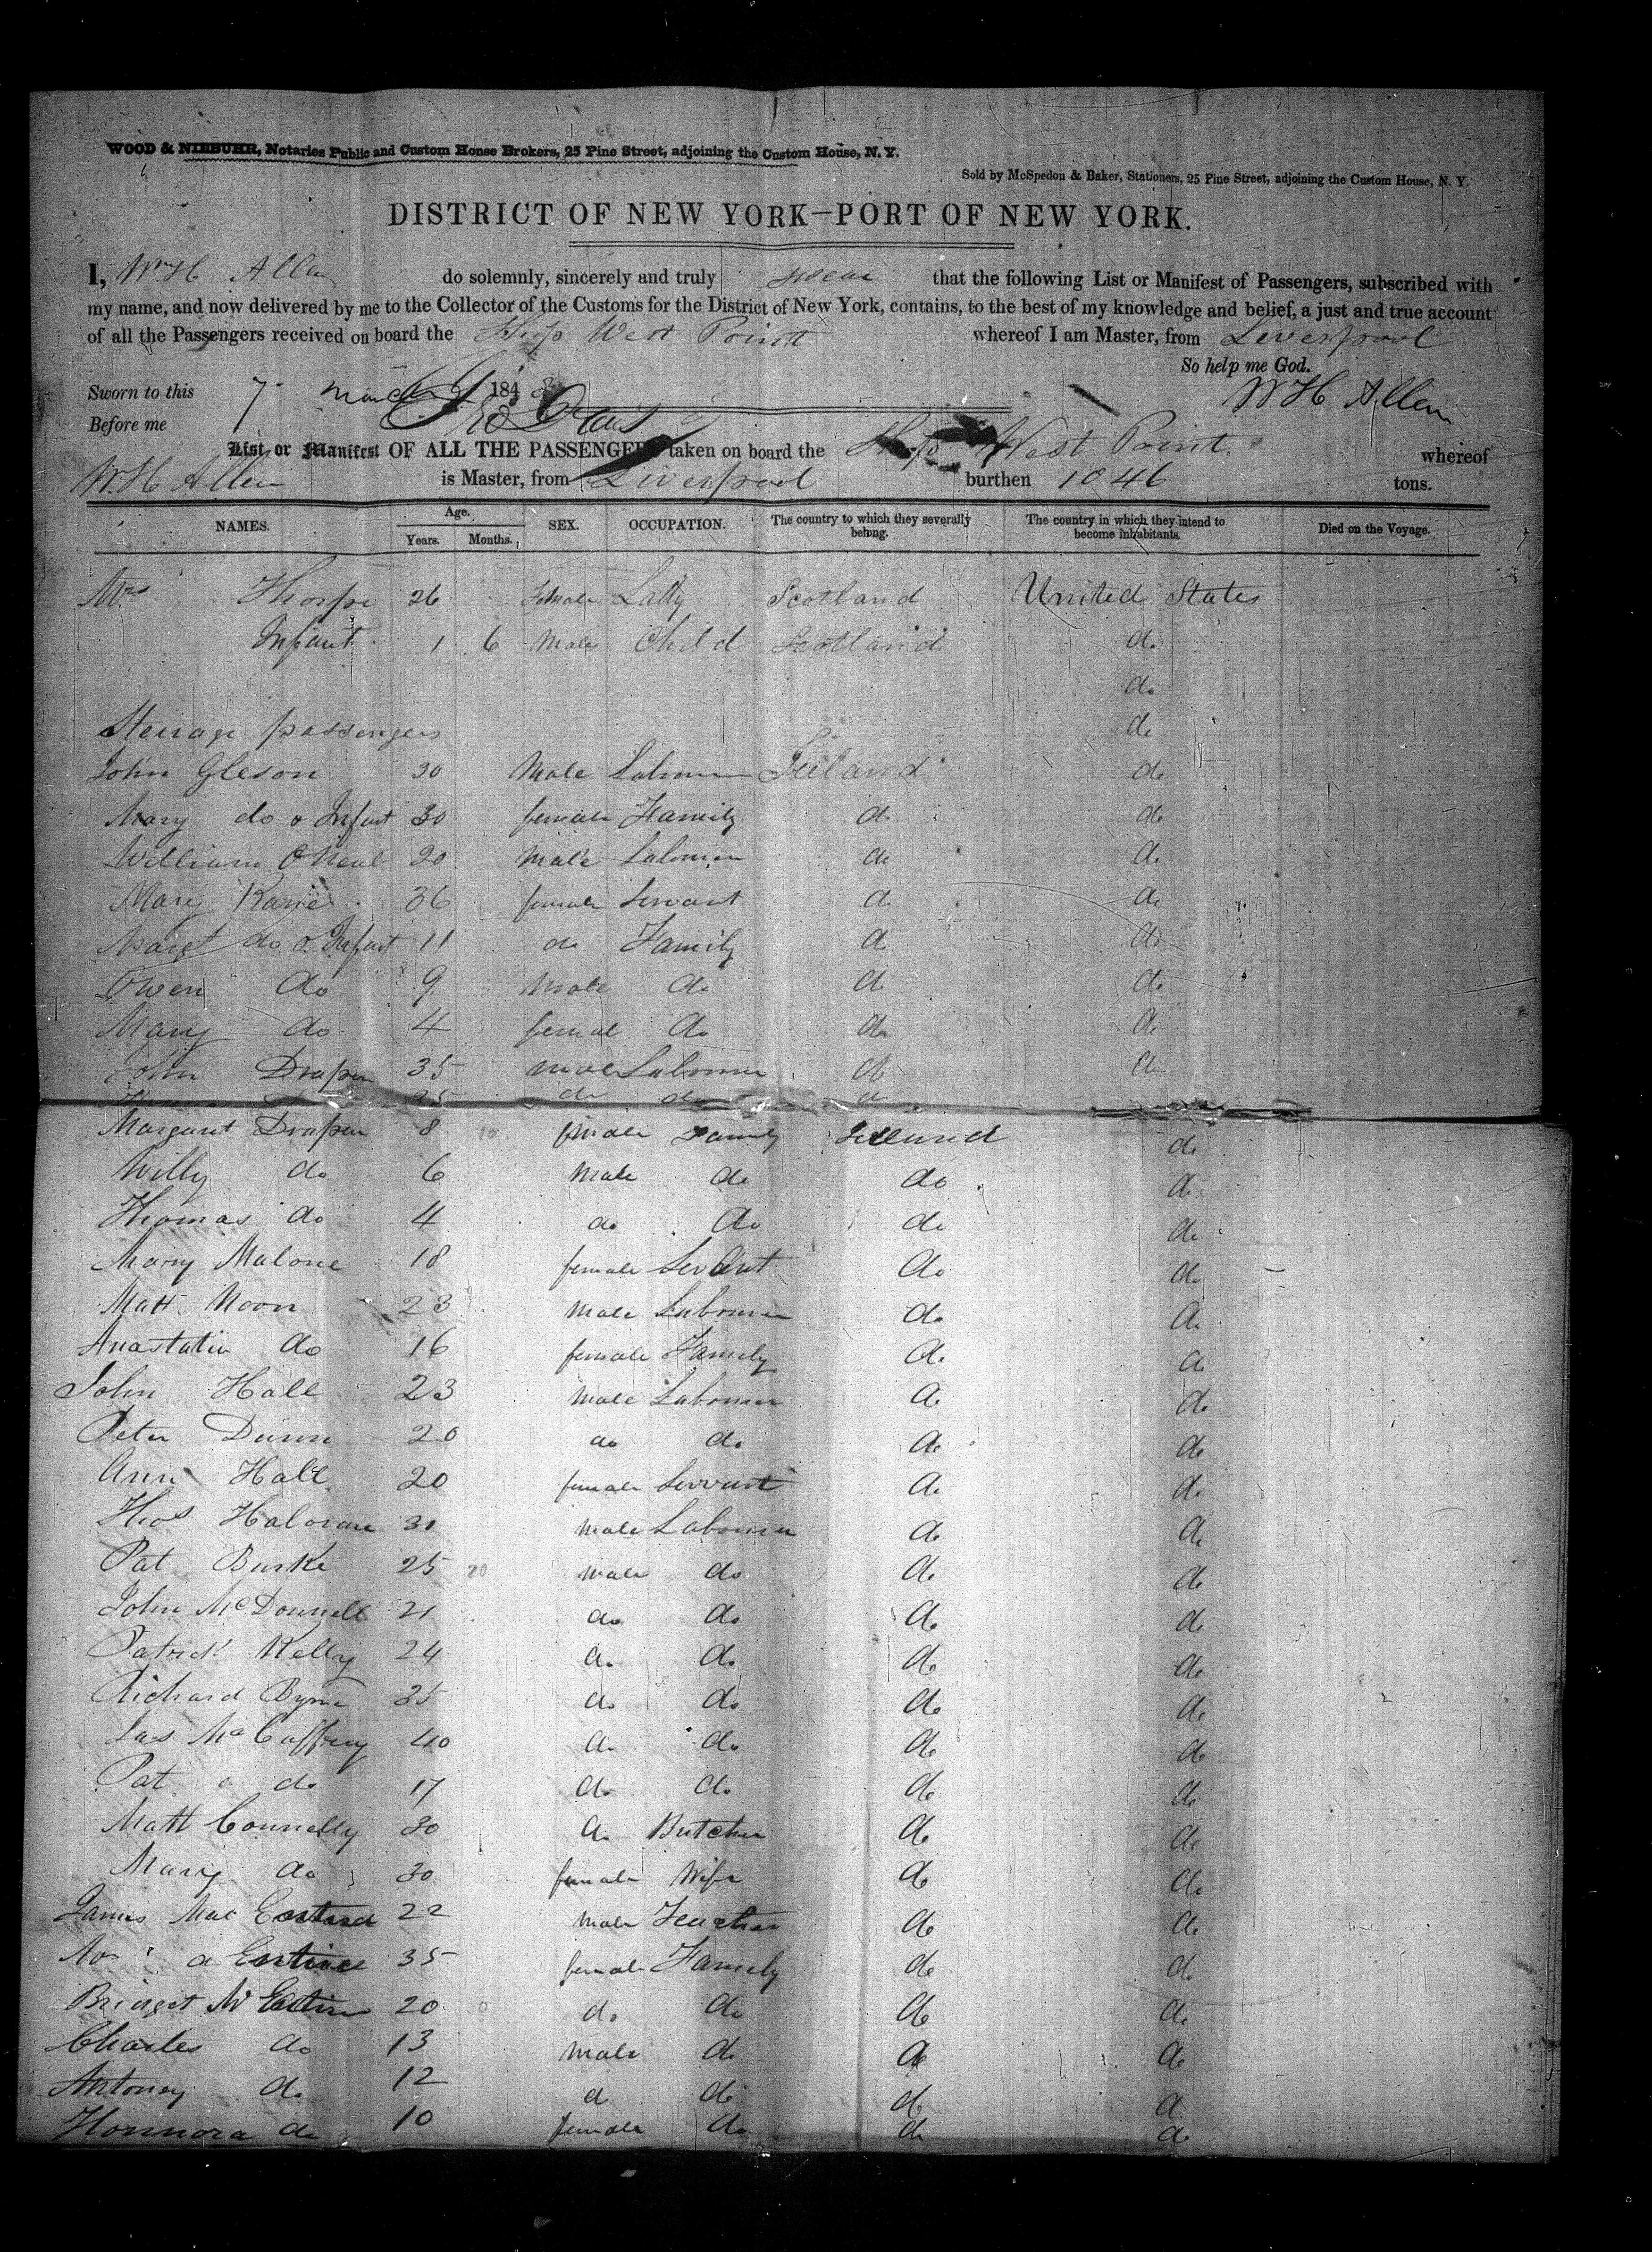 WOOD & NIEBUHR, Notaries Public and Custom House Brokers, 25 Pine Street, adjoining the Custom House, N. Y.
Sold by McSpedon & Baker, Stationers, 25 Pine Street, adjoining the Custom House, N. Y.
DISTRICT OF NEW YORK—PORT OF NEW YORK.
I, Wm H Allen do solemnly, sincerely and truly swear that the following List or Manifest of Passengers, subscribed with
my name, and now delivered by me to the Collector of the Customs for the District of New York, contains, to the best of my knowledge and belief, a just and true account
of all the Passengers received on board the Ship West Point whereof I am Master, from Liverpool
So help me God.
Sworn to this 7 March 1848 W H Allen
Before me
List or Manifest OF ALL THE PASSENGERS taken on board the Ship West Point whereof
W. H. Allen is Master, from Liverpool burthen 1046 tons.
NAMES. Age. Years. Months. SEX. OCCUPATION. The country to which they severally belong. The country in which they intend to become inhabitants. Died on the Voyage.
Mrs Thorpe 26 Female Lady Scotland United States
Infant 1 6 Male Child Scotland do
do
Steerage passengers do
John Gleson 30 Male Labourer Ireland do
Mary do & Infant 30 female Family do do
William O Neal 20 Male Labourer do do
Mary Kane 36 female Servant do do
Margt do & Infant 11 do Family do do
Owen do 9 Male do do do
Mary do 4 femal do do do
John Draper 35 male Labourer do do
35 do do do
Margaret Draper 8 10 female Family Ireland do
Willy do 6 Male do do do
Thomas do 4 do do do do
Mary Malone 18 female Servant do do
Matt Moon 23 Male Labourer do do
Anastatia do 16 female Family do do
John Hall 23 Male Labourer do do
Peter Dunn 20 do do do do
Ann Hall 20 female Servant do do
Thos Haloran 30 male Labourer do do
Pat Burke 25 20 male do do do
John McDonnell 21 do do do do
Patrick Kelly 24 do do do do
Richard Byrne 35 do do do do
Jas McCaffrey 40 do do do do
Pat do 17 do do do do
Matt Connelly 30 do Butcher do do
Mary do 30 female Wife do do
James Mac 22 Male Teacher do do
35 female Family do do
Bridget Mc 20 do do do do
Charles do 13 Male do do do
Antoney do 12 do do do do
Honnora do 10 female do do do